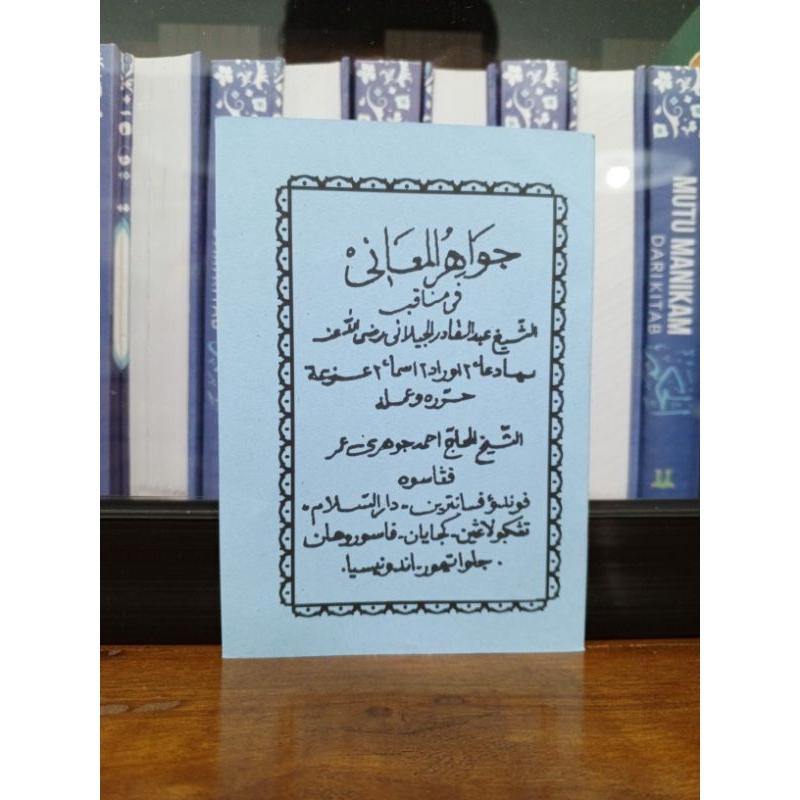 جَوَاهِرُ المَعَانِى
فى مناقب
الشيخ عبد القادر الجيلانى رضى الله عنه
دعاء٢ اوراد٢ اسماء٢ عزيمة
حرّره وعمله
الشيخ الحاج احمد جوهرى عمر
ڤڠاسوه
ڤوندوق ڤسانترين - دار السّلام -
تڠڮولاڠين - كجايان - ڤاسوروهان
. جاوا تيمور - اندونيسيا .
MUTU MANIKAM
DARI KITAB